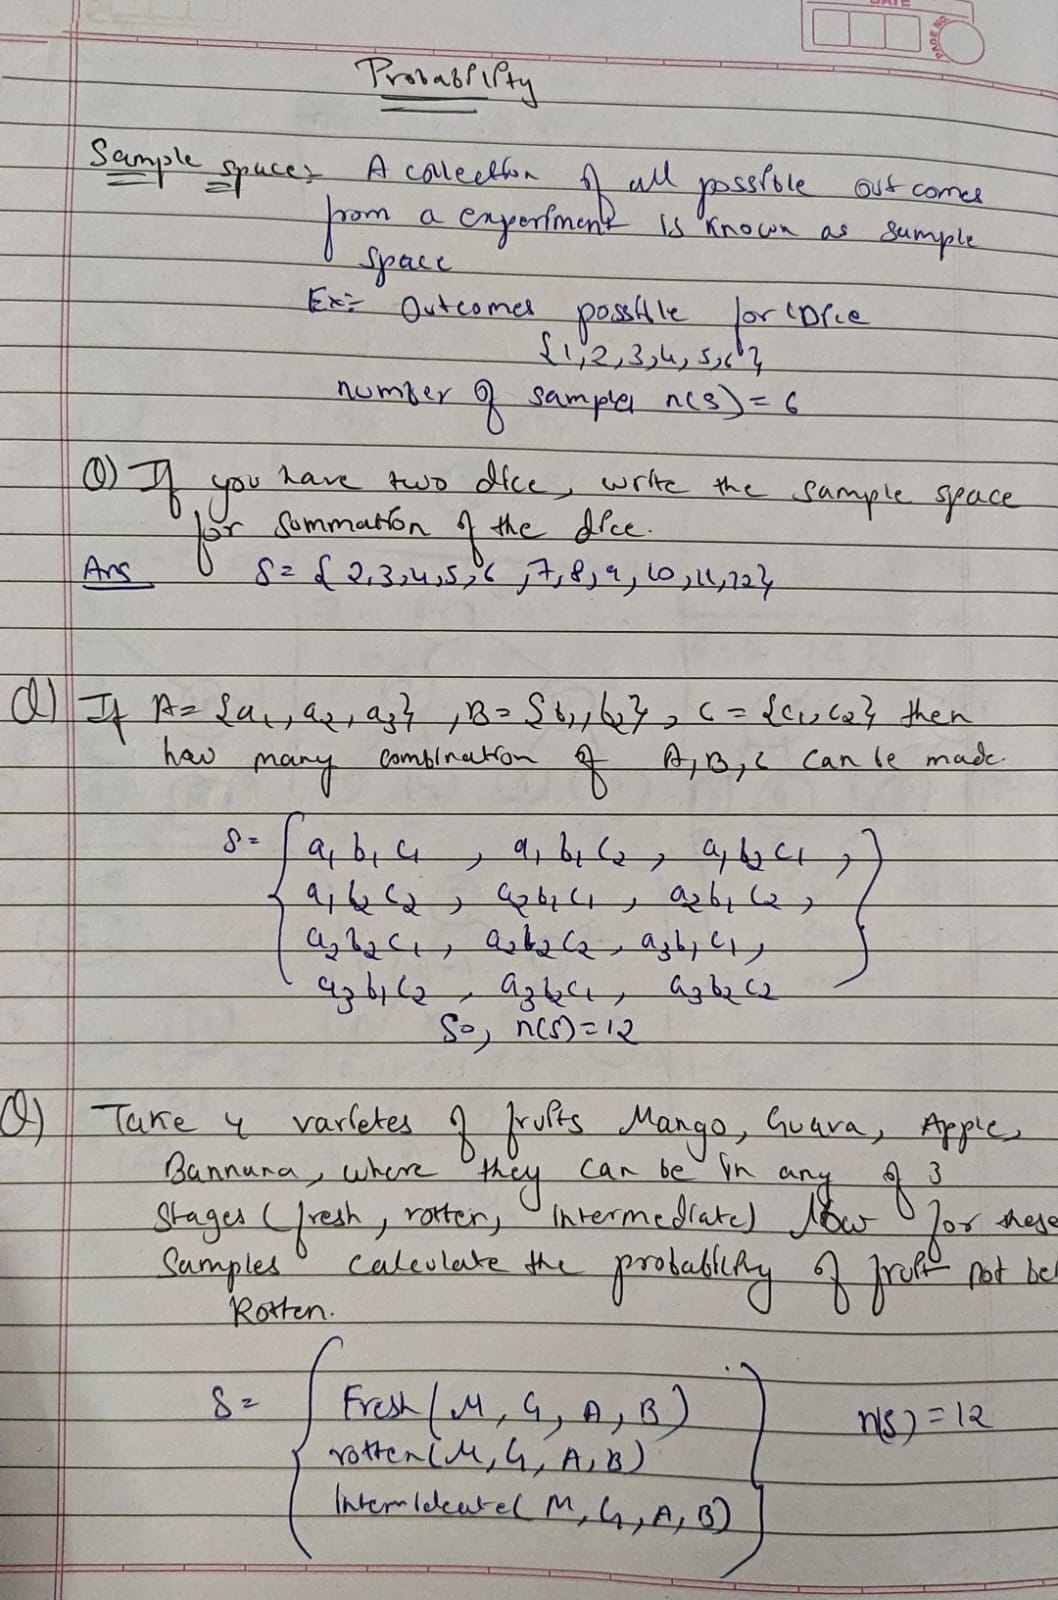 DATE
PAGE NO.
Probability
Sample space:- A collection of all possible outcomes
from a experiment is known as sample
space
Ex:- Outcomes possible for 1Dice
{1,2,3,4,5,6}
number of samples n(s) = 6
Q) If you have two dice, write the sample space
for summation of the dice.
Ans S = { 2,3,4,5,6,7,8,9,10,11,12}
Q) If A = {a₁, a₂, a₃}, B = {b₁, b₂}, C = {c₁, c₂} then
how many combination of A,B,C can be made.
S = { a₁ b₁ c₁ , a₁ b₁ c₂ , a₁ b₂ c₁ ,
a₁ b₂ c₂ , a₂ b₁ c₁ , a₂ b₁ c₂ ,
a₂ b₂ c₁ , a₂ b₂ c₂ , a₃ b₁ c₁ ,
a₃ b₁ c₂ , a₃ b₂ c₁ , a₃ b₂ c₂ }
So, n(S) = 12
Q) Take 4 varietes of fruits Mango, Guava, Apple,
Bannana, where they can be in any of 3
Stages (fresh, rotten, Intermediate) Now for these
Samples calculate the probability of fruit not be
Rotten.
S = { Fresh (M, G, A, B)
n(s) = 12
rotten (M, G, A, B)
( M, G, A, B) }